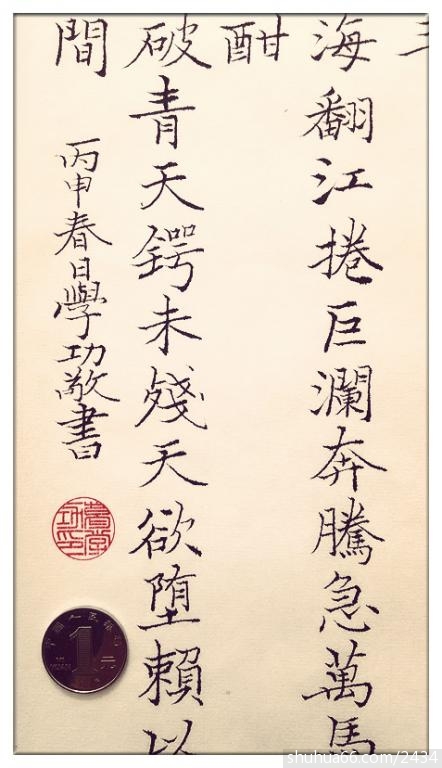 海翻江捲巨瀾奔騰急萬馬
酣
破青天鍔未殘天欲墮賴以
間
丙申春日學功敬書
1元
YUAN
shuhua66.com/2434